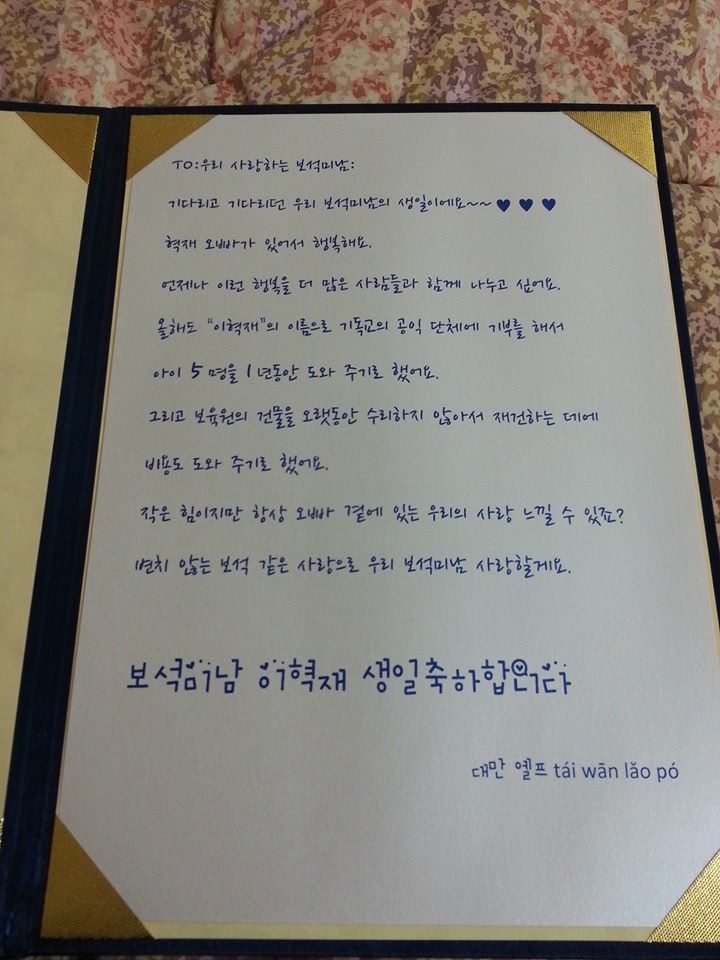 TO:우리 사랑하는 보석미남:
기다리고 기다리던 우리 보석미남의 생일이에요~~♥ ♥ ♥
혁재 오빠가 있어서 행복해요.
언제나 이런 행복을 더 많은 사람들과 함께 나누고 싶어요.
올해도 "이혁재"의 이름으로 기독교의 공익 단체에 기부를 해서
아이 5 명을 1 년동안 도와 주기로 했어요.
그리고 보육원의 건물을 오랫동안 수리하지 않아서 재건하는 데에
비용도 도와 주기로 했어요.
작은 힘이지만 항상 오빠 곁에 있는 우리의 사랑 느낄 수 있죠?
변치 않는 보석 같은 사랑으로 우리 보석미남 사랑할게요.
보석미남 이혁재 생일축하합니다
대만 엘프 tái wān lǎo pó